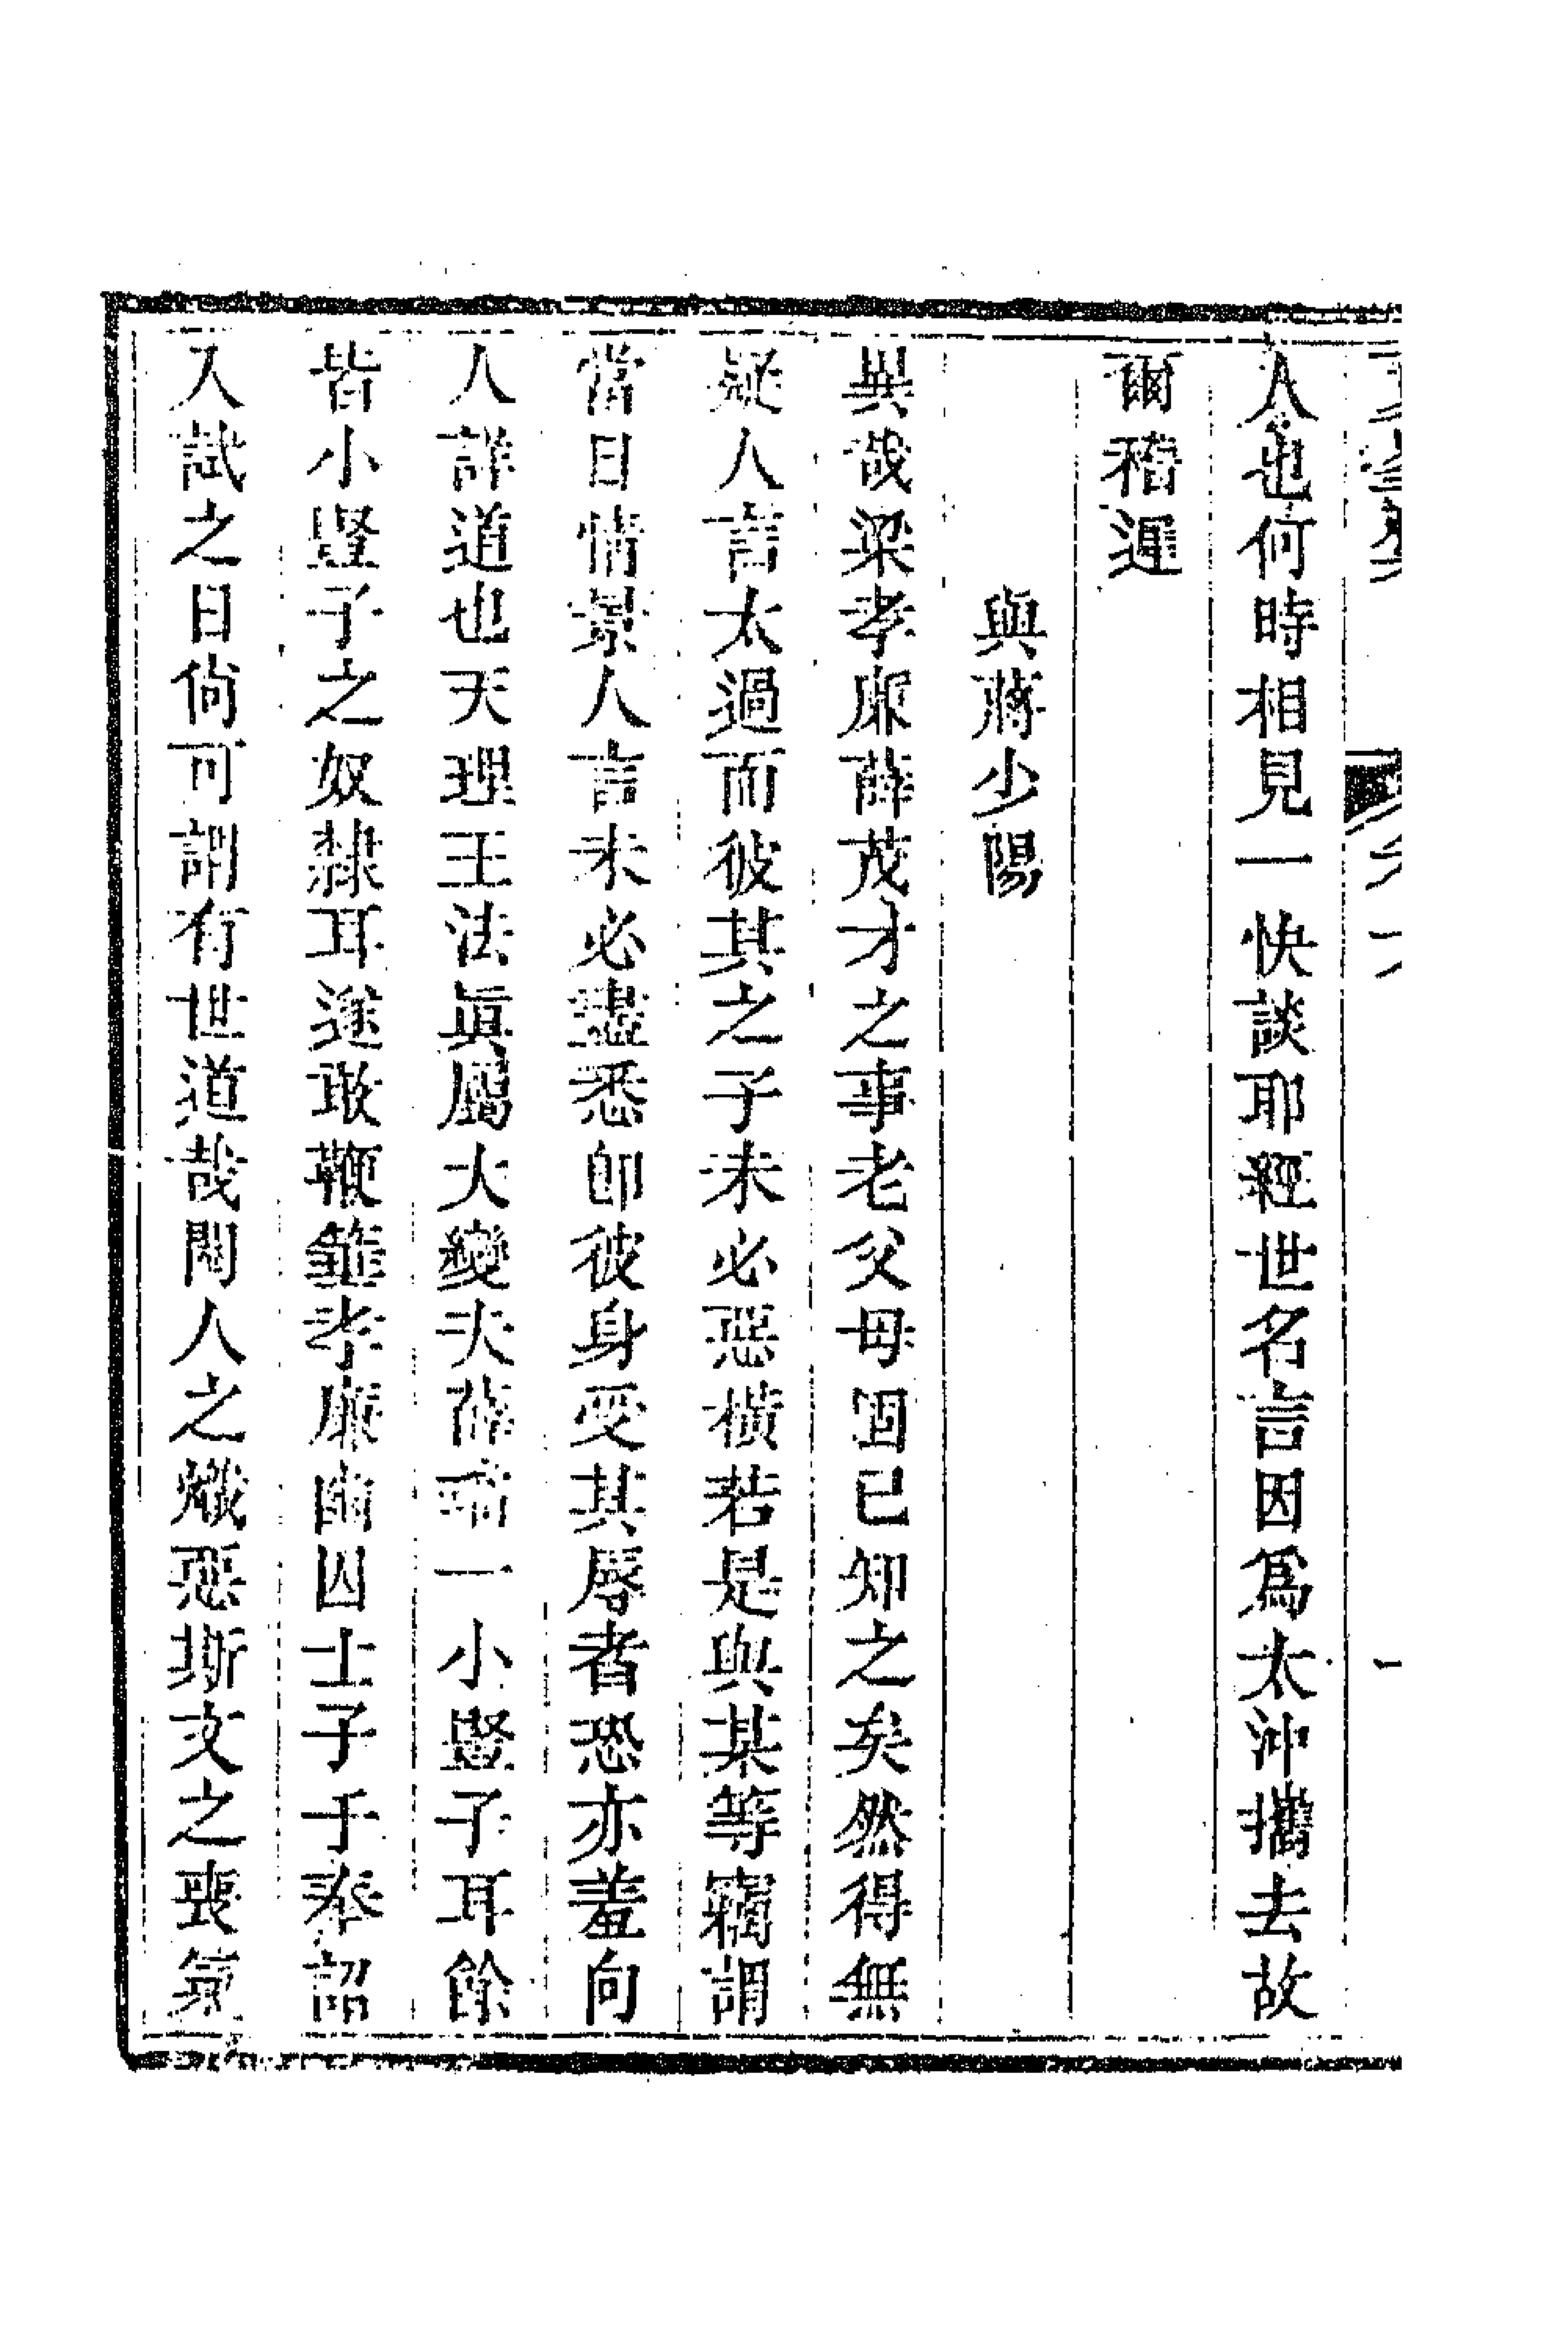 人也何時相見一快談耶經世名言因爲太沖攜去故
爾稽遲
與蔣少陽
異哉梁孝廉薛茂才之事老父母固已知之矣然得無
疑人言太過而彼其之子未必惡橫若是與某等竊謂
當日情景人言未必盡悉卽彼身受其辱者恐亦羞向
人詳道也天理王法眞屬大變夫薛 一小豎子耳餘
皆小豎子之奴隸耳遂敢鞭箠孝廉幽囚士子于奉詔
入試之日尚可謂有世道哉閹人之熾惡斯文之喪氣